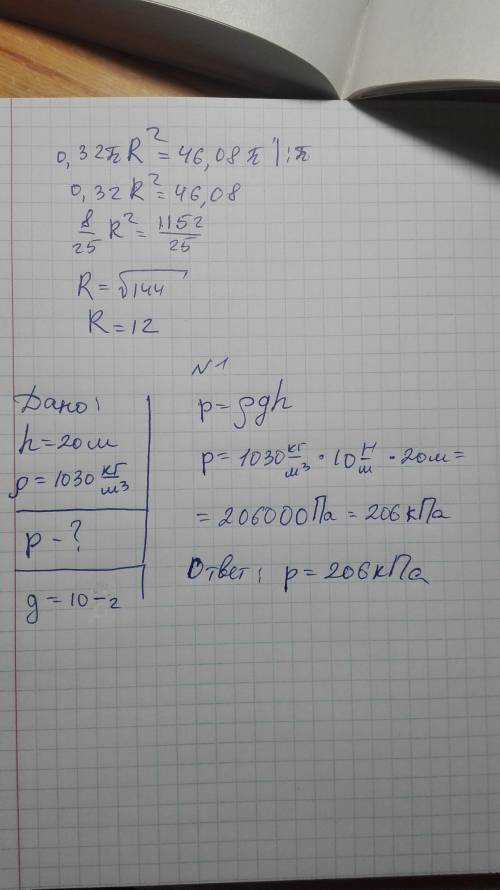 0,32πR² = 46,08π |:π
0,32R² = 46,08
8/25 R² = 1152/25
R = √144
R = 12
N1
Дано:
h = 20м
ρ = 1030 кг/м3
p - ?
g = 10-2
p = ρgh
p = 1030 кг/м3 · 10 Н/m · 20м =
= 206000Па = 206кПа
Ответ: p = 206кПа